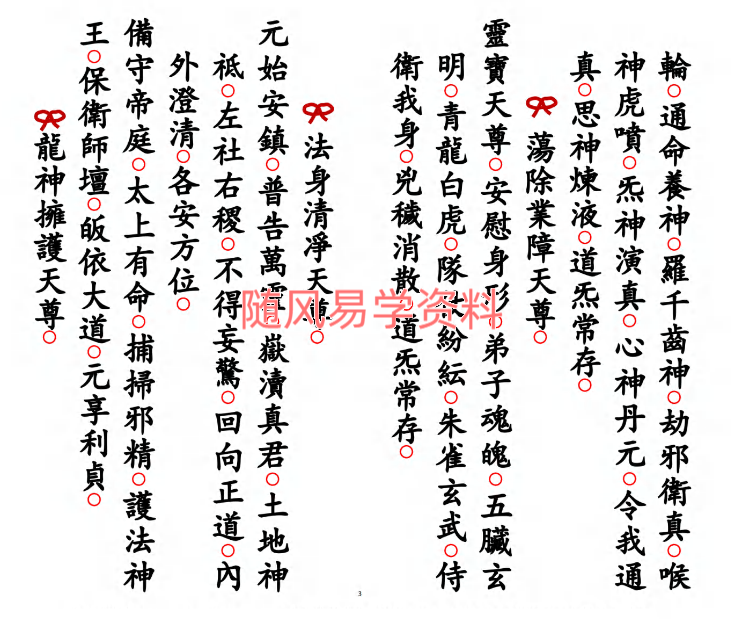 輪○通命養神○羅千齒神○劫邪衛真○喉
神虎噴○炁神演真○心神丹元○令我通
真○思神煉液○道炁常存○
蕩除業障天尊○
靈寶天尊○安慰身形○弟子魂魄○五臟玄
明○青龍白虎○隊仗紛紜○朱雀玄武○侍
衛我身○兇穢消散○道炁常存○
法身清凈天尊○
元始安鎮○普告萬靈○嶽瀆真君○土地神
祇○左社右稷○不得妄驚○回向正道○內
外澄清○各安方位○
備守帝庭○太上有命○捕掃邪精○護法神
王○保衛師壇○皈依大道○元享利貞○
龍神擁護天尊○
随风易学资料
3